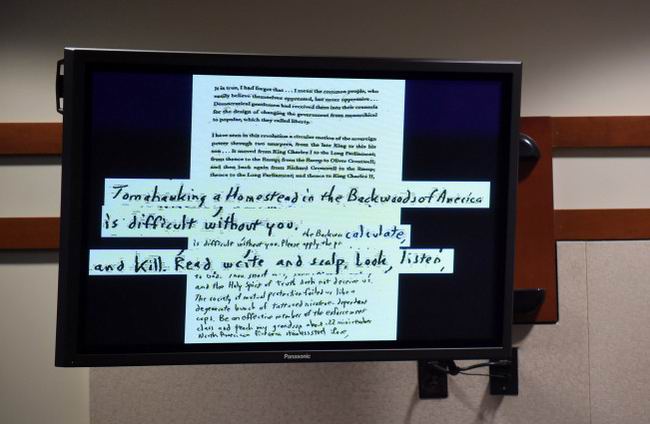 It is true, I had forgot that . . . I mean the common people, who
easily believe themselves oppressed, but never oppressive . . .
Democratical gentlemen had received them into their counsels
for the design of changing the government from monarchical
to popular, which they called liberty.
I have seen in this revolution a circular motion of the sovereign
power through two usurpers, from the late King to this his
son . . . It moved from King Charles I to the Long Parliament;
from thence to the Rump; from the Rump to Oliver Cromwell;
and then back again from Richard Cromwell to the Rump;
thence to the Long Parliament; and thence to King Charles II,
Tomahawking a Homestead in the Backwoods of America
is difficult without you.
the Backwoo calculate,
is difficult without you. Please apply the pr
and Kill. Read write and scalp. Look, listen,
and the Holy Spirit of Truth does not deceive us.
The society of mutual protection failed us like a
degenerate bunch of tattooed nicotine-dependent
cops. Be an effective member of the enforcement
class and teach my grandson about .22 minirevolver
North American Firearm stainless steel Love,
Panasonic